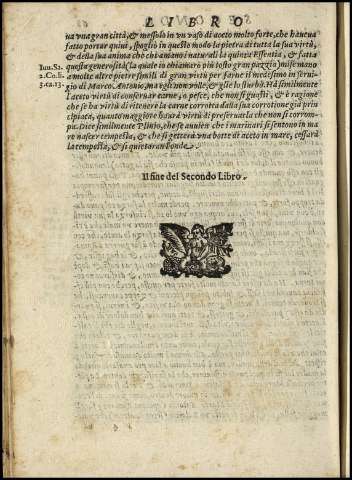 L I B R O
ua vna gran città, & messolo in vn vaso di aceto molto forte, che haueua
fatto portar quiui, spogliò in questo modo la pietra di tutta la sua virtù,
& della sua anima che chiamamo i naturali la quinta Essentia, & fatta
Iuu.Sa.
questa generosità (la quale io chiamarei più tosto gran pazzia) mise mano
2.Co.li.
a molte altre pietre simili di gran virtù per farne il medesimo in serui-
3.ca.13.
gio di Marco. Antonio, ma egli non volle, & glie lo sturbò. Hà similmente
l'aceto virtù di conseruar e carne, o pesce, che non si guasti, & è ragione
che se ha virtù di ritenere la carne corrotta dalla sua corrotione già prin
cipiata, quanto maggiore haurà virtù di preseruar la che non si corrom-
pa. Dice similmente Plinio, che se auuiene che i marinari si sentono in ma
re nascer tempesta, & che si getterà vna botte di aceto in mare, cessarà
la tempesta, & si quietaran l'onde.
Il fine del Secondo Libro.